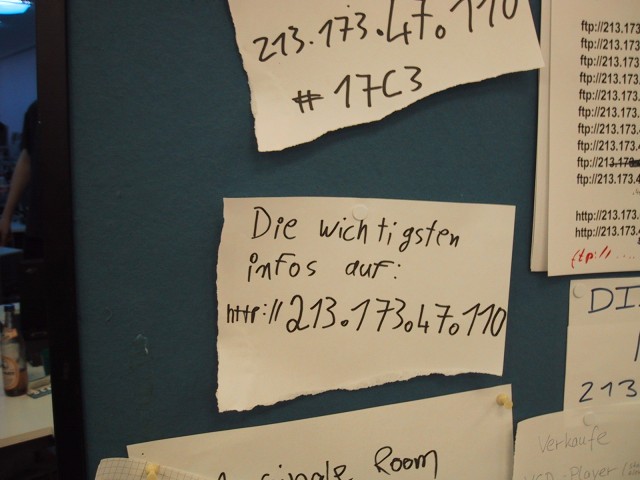 213.173.47.110
# 17C3
Die wichtigsten
infos auf:
http://213.173.47.110
ftp://213.173
ftp://213.173
ftp://213.173
ftp://213.173
ftp://213.173
ftp://213.173.
ftp://213.173.4
ftp://213.173.4
ftp://213.173.4
http://213.173.
http://213.173.
ftp://....
DI
213
Verkaufe
Player
single Room